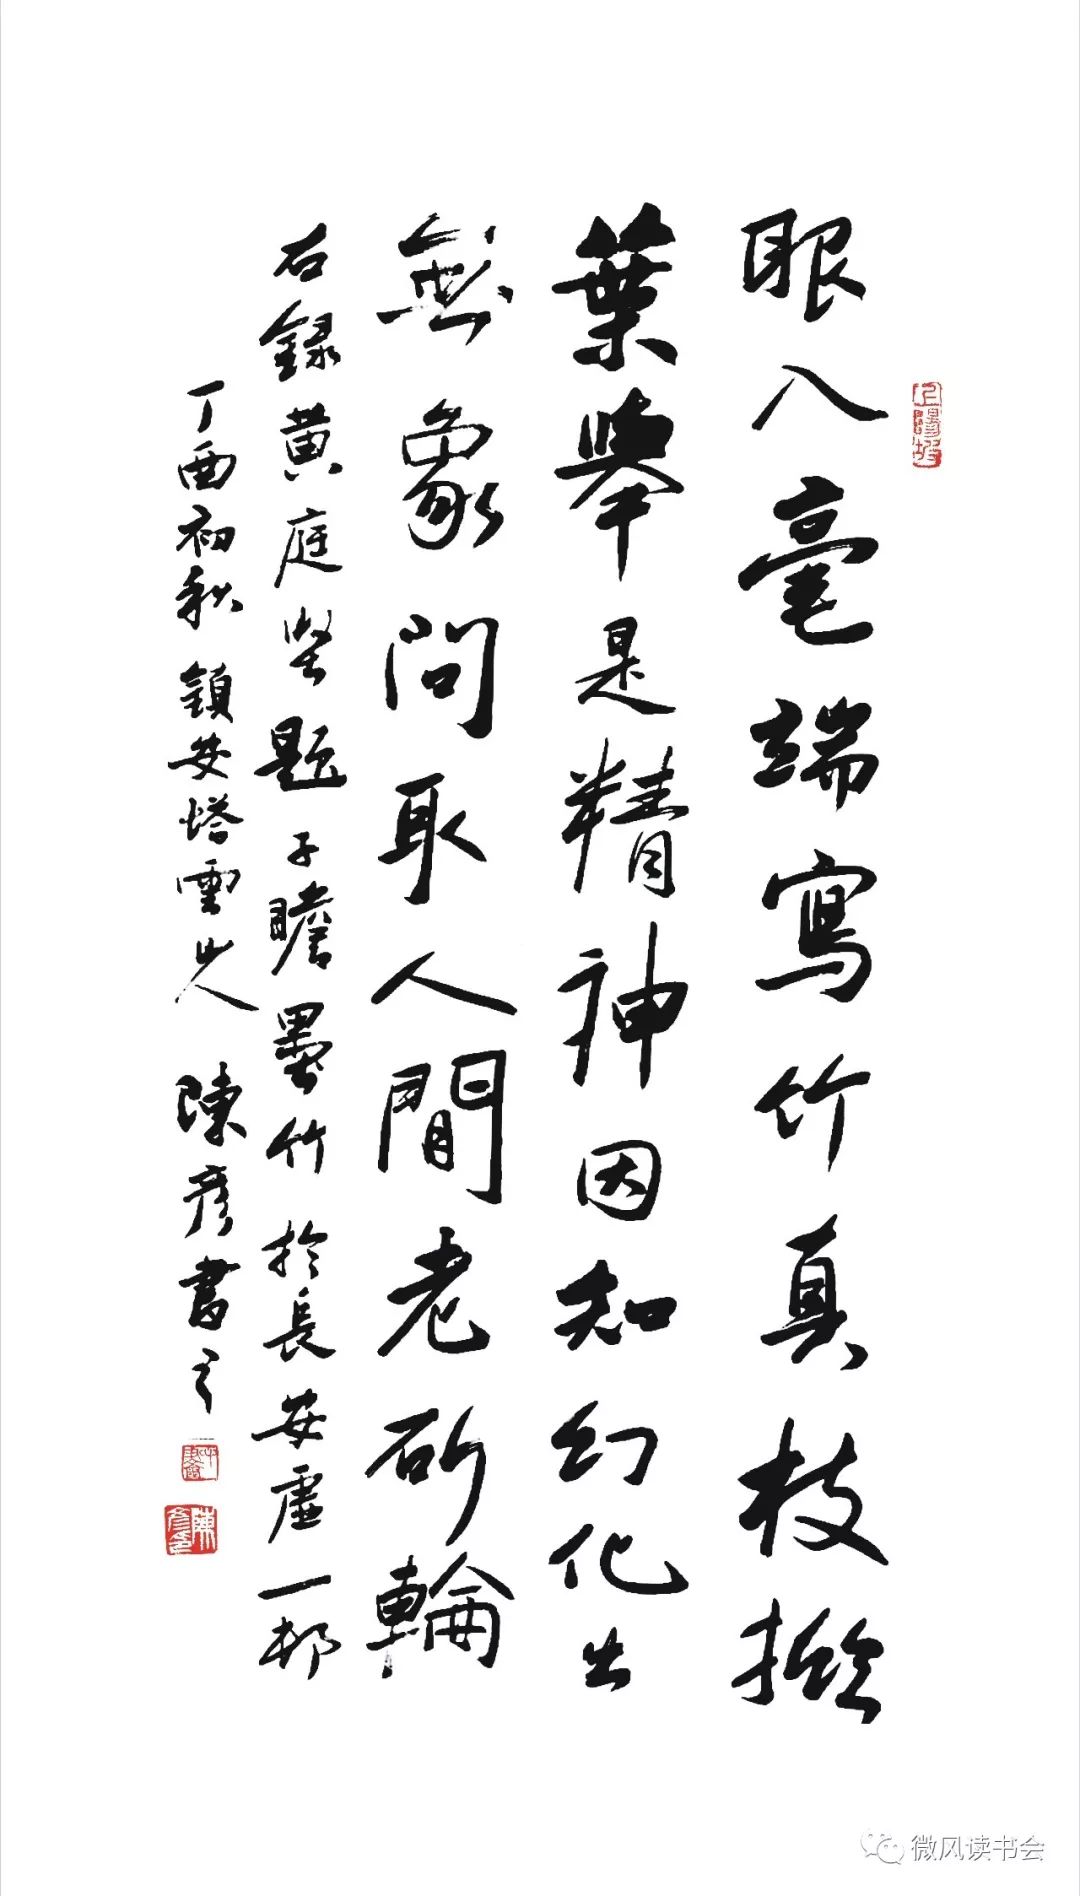 眼入毫端寫竹真枝掀
葉舉是精神因知幻化出
無象問取人間老斫輪
右録黄庭堅題子瞻墨竹於長安廬一邨
丁酉初秋鎮安塔雲山人陳彦書之
微风读书会